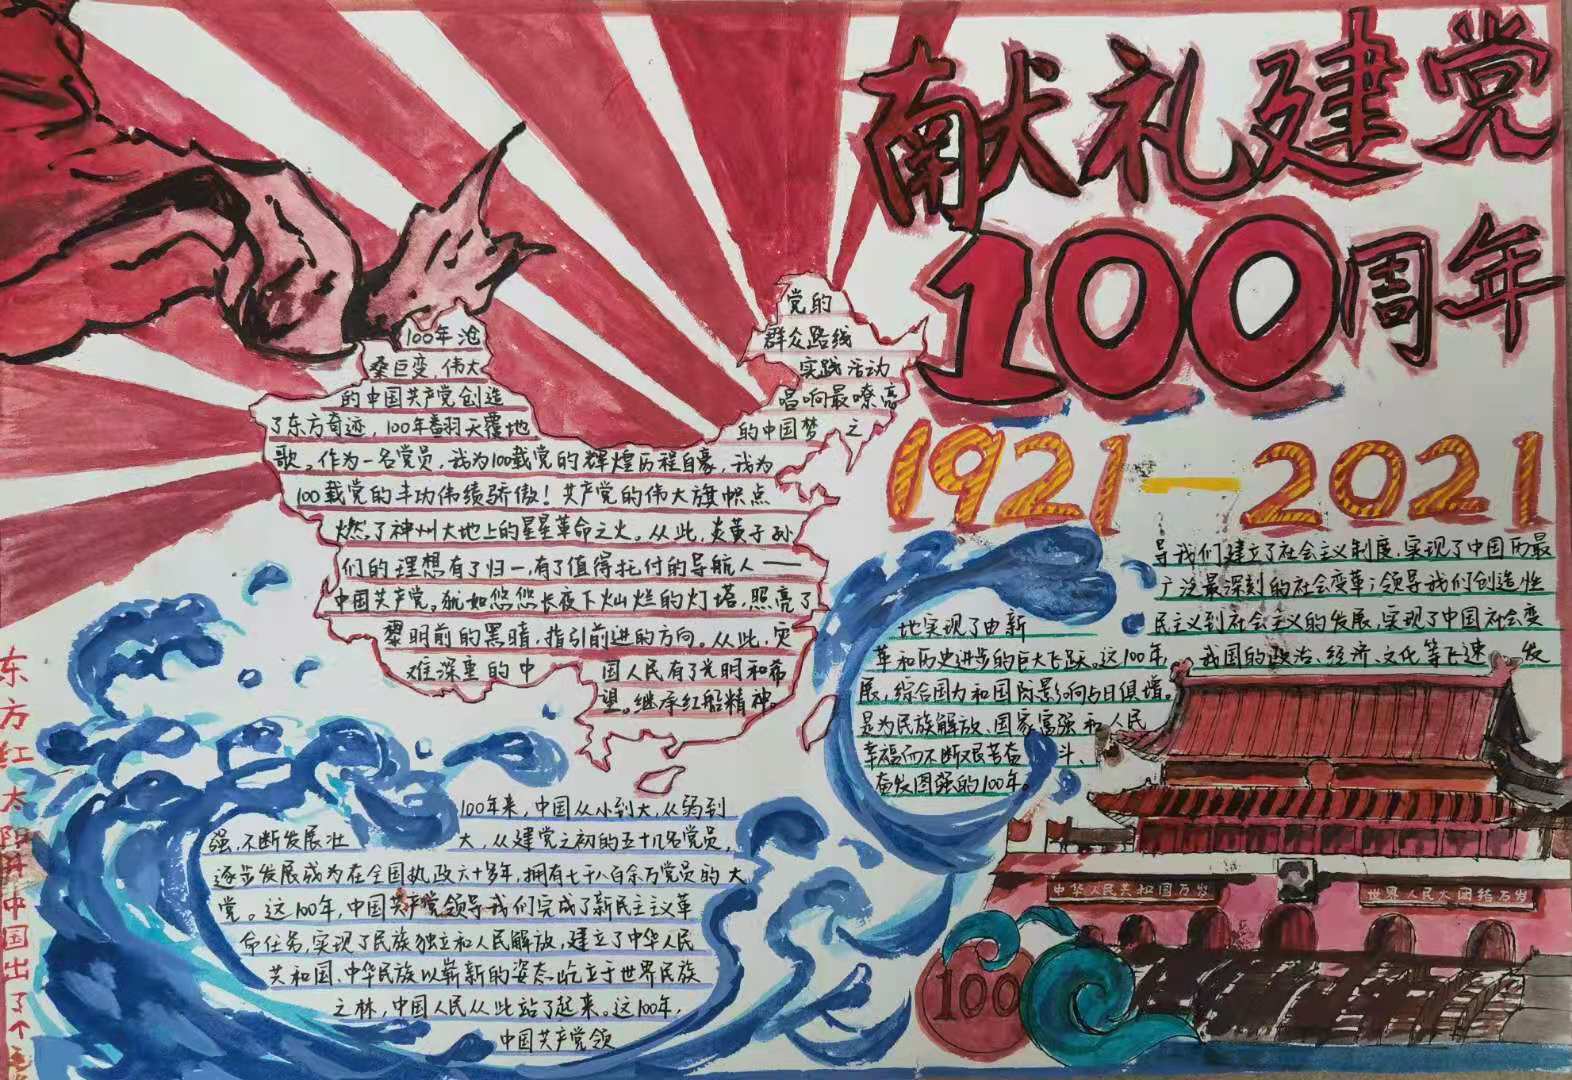 献礼建党
100周年
1921—2021
100年沧
桑巨变,伟大
的中国共产党创造
了东方奇迹,100年翻天覆地
歌。作为一名党员,我为100载党的辉煌历程自豪,我为
100载党的丰功伟绩骄傲!共产党的伟大旗帜点
燃了神州大地上的星星革命之火。从此,炎黄子孙
们的理想有了归一,有了值得托付的导航人——
中国共产党。犹如悠悠长夜下灿烂的灯塔,照亮了
黎明前的黑暗,指引前进的方向。从此,灾
难深重的中 国人民有了光明和希
望。继承红船精神。
党的
群众路线
实践活动
唱响最嘹亮
的中国梦之
100年来,中国从小到大,从弱到
强,不断发展壮 大,从建党之初的五十几名党员,
逐步发展成为在全国执政六十多年,拥有七千八百余万党员的大
党。这100年,中国共产党领导我们完成了新民主主义革
命任务,实现了民族独立和人民解放,建立了中华人民
共和国、中华民族以崭新的姿态屹立于世界民族
之林,中国人民从此站了起来。这100年,
中国共产党领
导我们建立了社会主义制度,实现了中国历最
广泛最深刻的社会变革;领导我们创造性
地实现了由新 民主义到社会主义的发展,实现了中国社会变
革和历史进步的巨大飞跃。这100年, 我国的政治、经济、文化等飞速 发
展,综合国力和国际影响力与日俱增。
是为民族解放、国家富强和人民
幸福而不断艰苦奋 斗、
奋发图强的100年。
中华人民共和国万岁
世界人民大团结万岁
100
东方红太阳升中国出了个